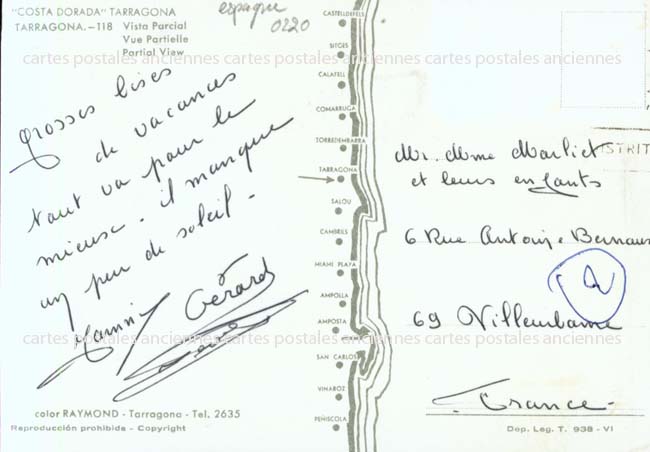 "COSTA DORADA" TARRAGONA
TARRAGONA.-118 Vista Parcial
Vue Partielle
Partial View
espagne
0220
grosses bises
de vacances
tout va pour le
mieux. il manque
un peu de soleil.
Gérard
color RAYMOND - Tarragona - Tel. 2635
Reproducción prohibida - Copyright
CASTELLDEFELS
SITGES
CALAFELL
COMARRUGA
TORREDEMBARRA
TARRAGONA
SALOU
CAMBRILS
MIAMI PLAYA
AMPOLLA
AMPOSTA
SAN CARLOS
VINAROZ
PEÑISCOLA
STRIT
Mr. Mme Marliet
et leurs enfants
6 Rue Antoine Bernaus
69 Villeurbanne
France
Dep. Leg. T. 938 - VI
cartes postales anciennes cartes postales anciennes cartes postales anciennes
cartes postales anciennes cartes postales anciennes cartes postales anciennes
cartes postales anciennes cartes postales anciennes cartes postales anciennes